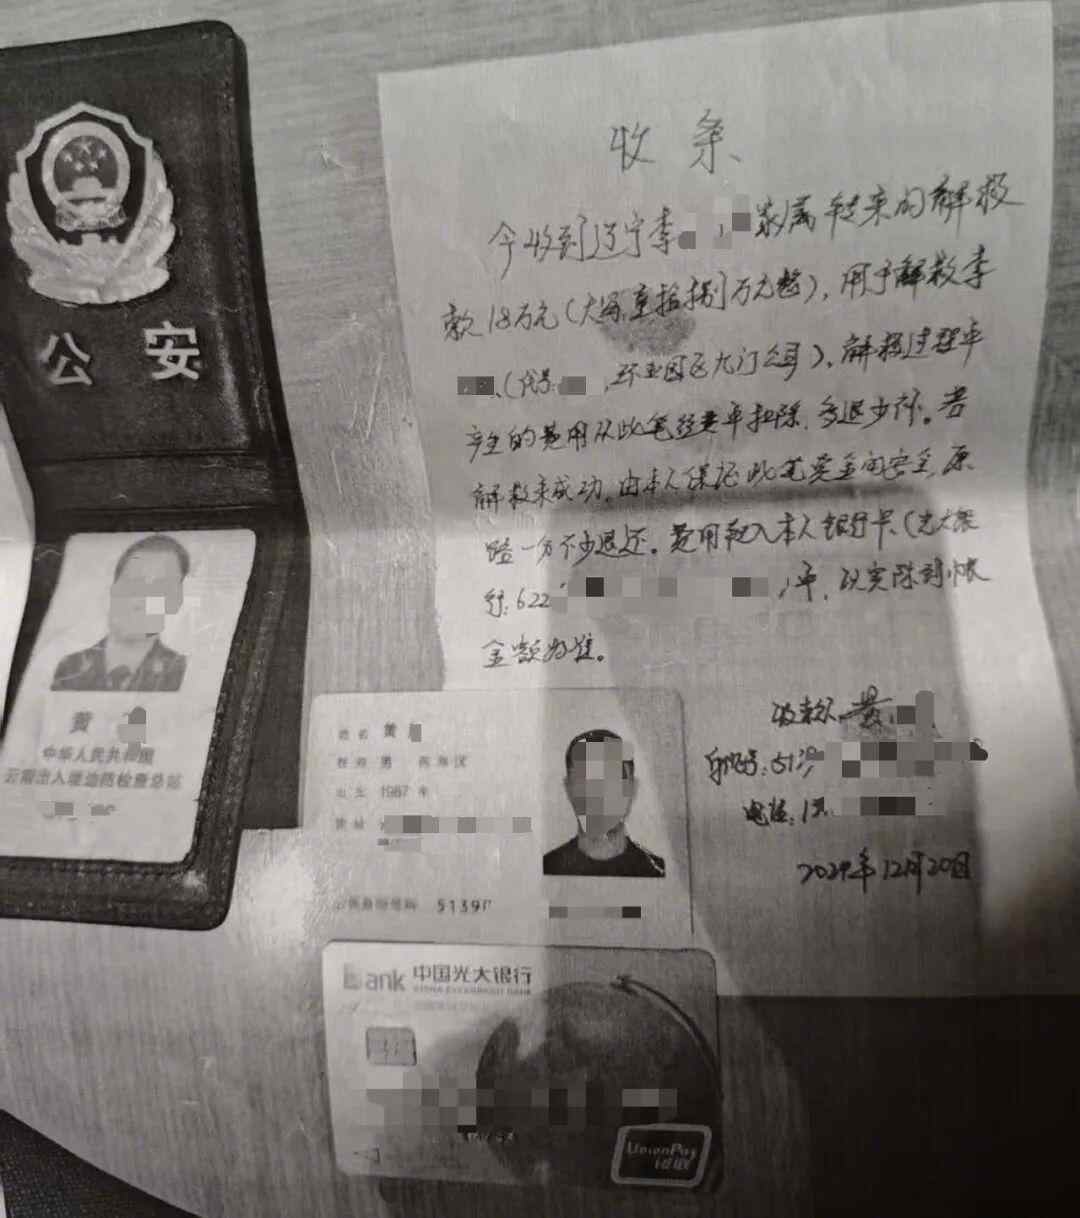 公安
黄
中华人民共和国
云南出入境边防检查总站
收条
今收到辽宁李 家属转来的解救
款18万元(大写:壹拾捌万元整),用于解救李
(代号: ,环亚园区九门公司)、解救过程中
产生的费用从此笔经费中扣除,多退少补。若
解救未成功,由本人保证此笔资金的安全,原
路一分不少退还。费用转入本人银行卡(光大银
行:622 )中,以实际到帐
金额为准。
收款人:黄
身份证号:513
电话:1
2024年12月20日
姓名 黄
性别 男 民族 汉
出生 1987 年
公民身份号码 5139
Bank 中国光大银行
CHINA EVERBRIGHT BANK
UnionPay
银联